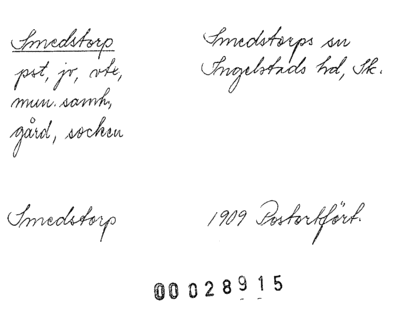 Smedstorp
pst, jv, vtx,
mun. samh,
gård, socken
Smedstorps sn
Ingelstads hd, Sk.
Smedstorp
1909 Postortfört.
00028915